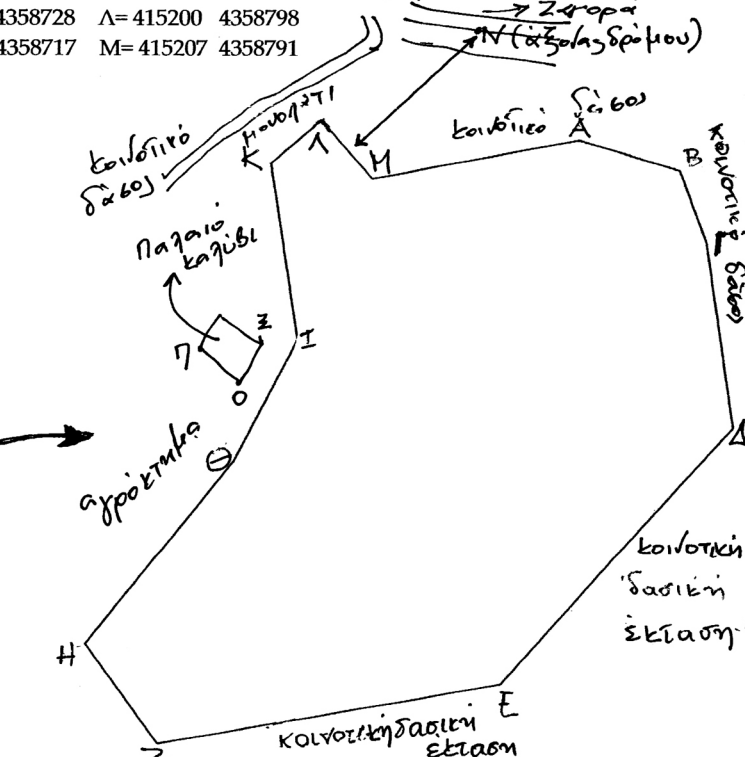 4358728 Λ= 415200 4358798
4358717 Μ= 415207 4358791
→ Ζαγορά
Ν (άξονας δρόμου)
κοινοτικό
δάσος
μονοπάτι
Κ
Λ
Μ
κοινοτικό δάσος
Α
Β
κοινοτικό δάσος
Παλαιό
καλύβι
Ξ
Π
Ο
Ι
Θ
αγρόκτημα
Δ
κοινοτική
δασική
έκταση
Η
Ε
Ζ
κοινοτική δασική
έκταση